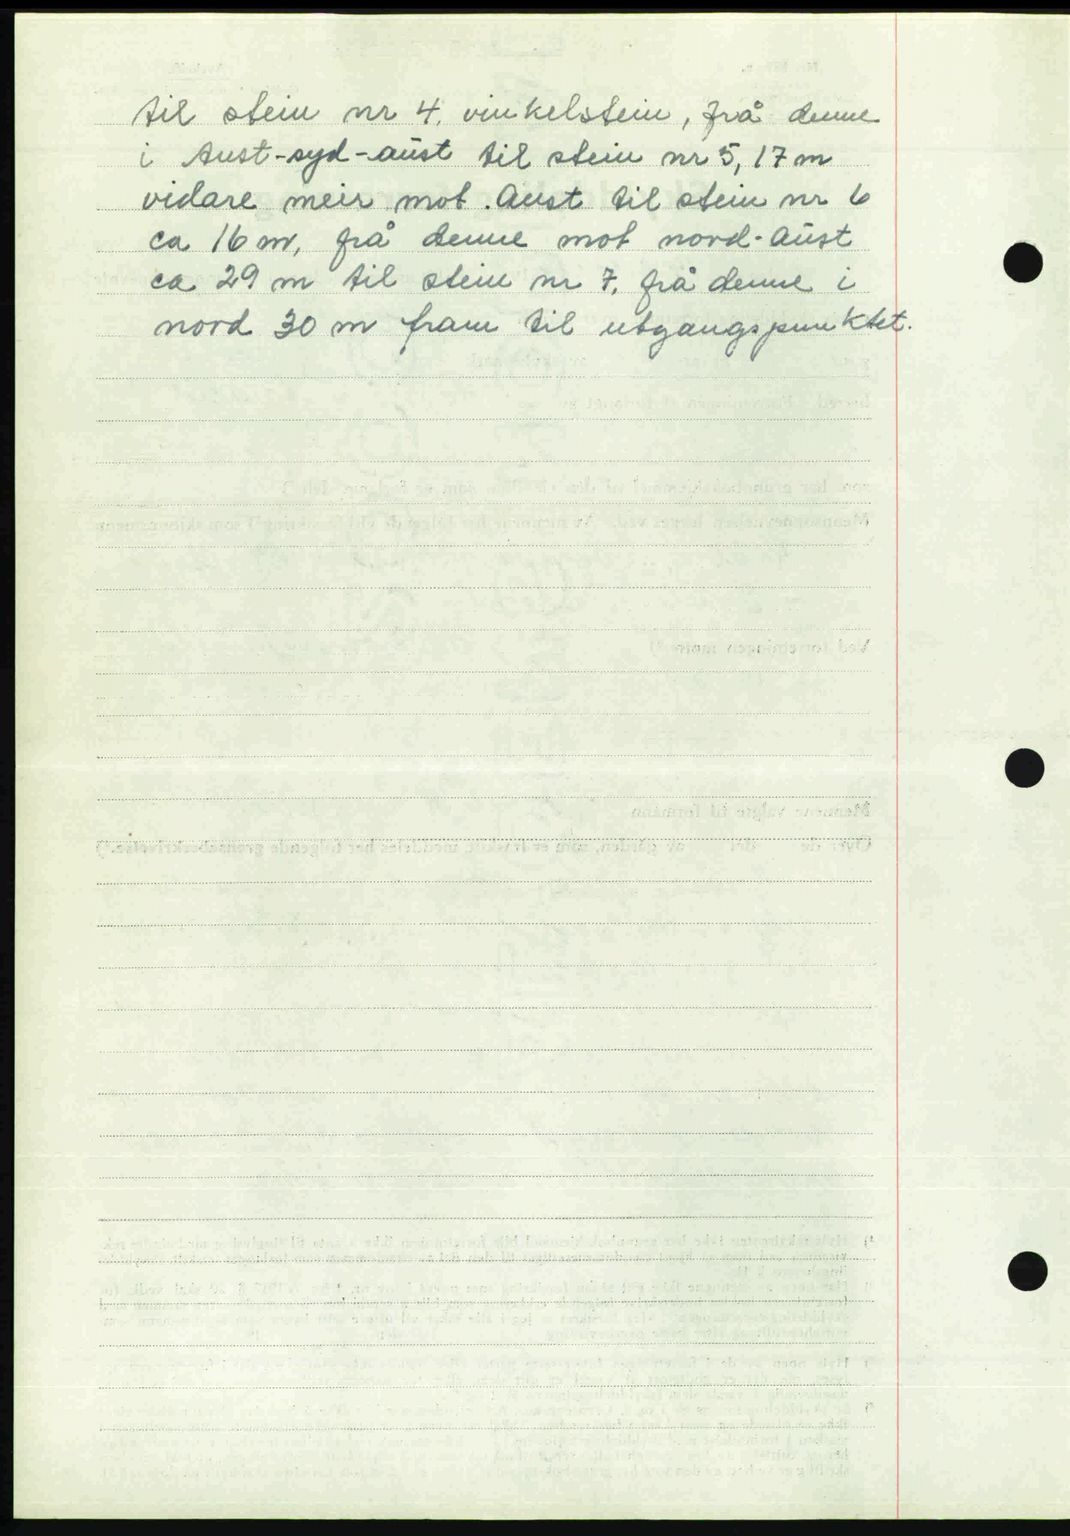 til stein nr 4. vinkelstein, frå denne
i Aust-syd-aust til stein nr 5, 17 m
vidare meir mot. Aust til stein nr 6
ca 16 m, frå denne mot nord-aust
ca 29 m til stein nr 7, frå denne i
nord 30 m fram til utgangspunktet.